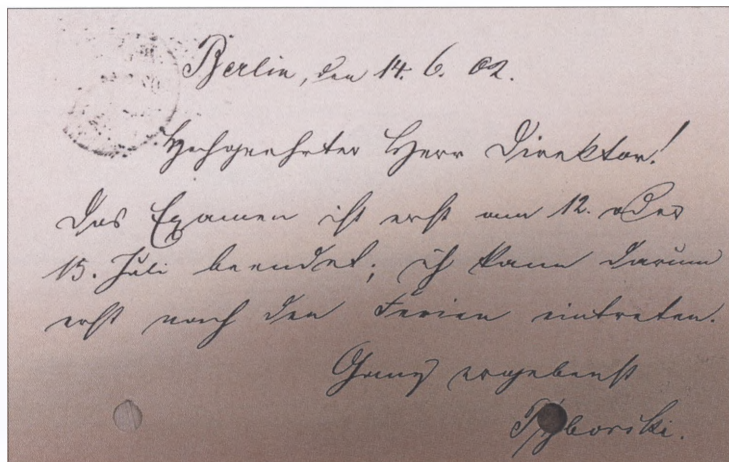 Berlin, den 14. 6. 02.
Hochgeehrter Herr Direktor!
Das Examen ist erst am 12. oder
15. Juli beendet; ich kann darum
erst nach den Ferien eintreten.
Ganz ergebenst